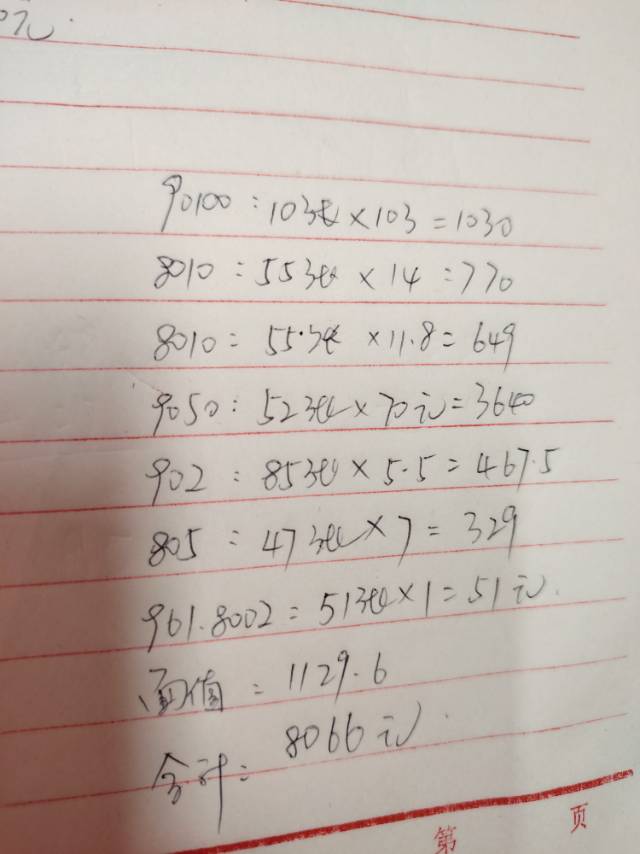 元.
90100:10张×103=1030
8010:55张×14=770
8010:55张×11.8=649
9050:52张×70元=3640
902:85张×5.5=467.5
805:47张×7=329
961.8002=51张×1=51元.
面值:1129.6
合计:8066元.
第 页